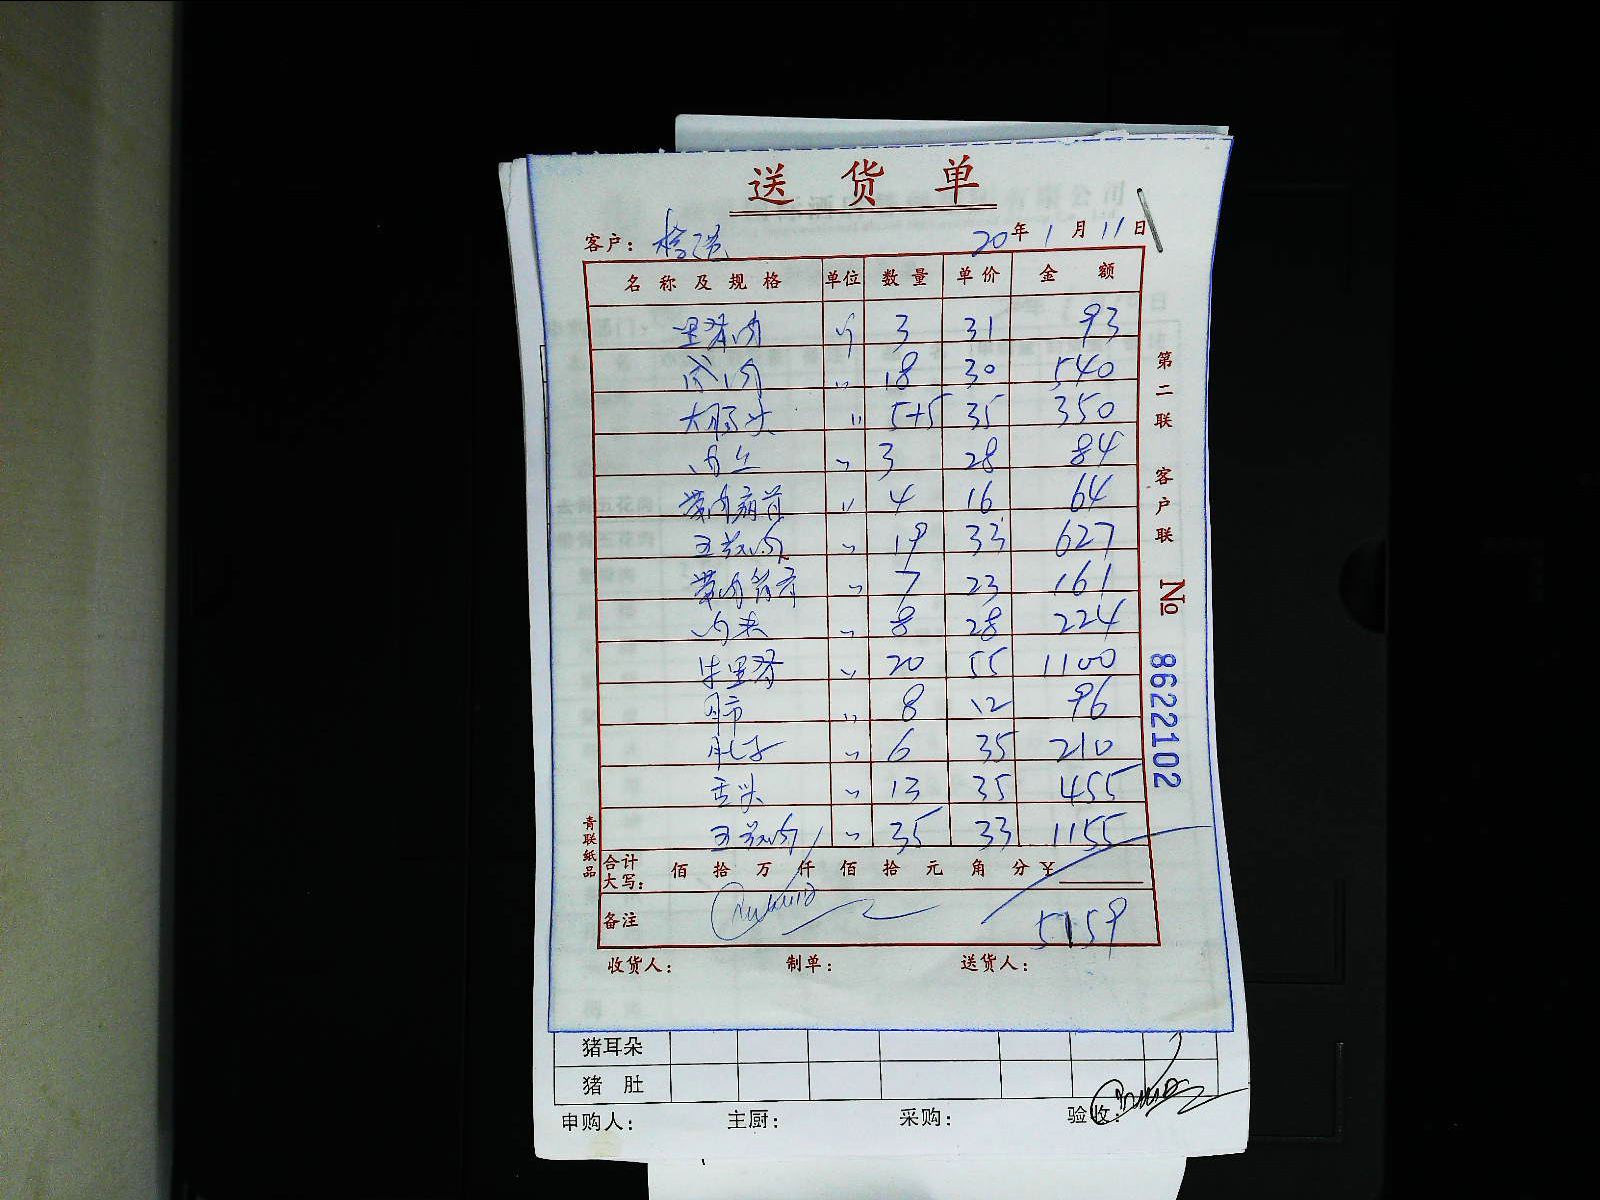 送货单
客户： 20年1月11日
名称及规格 单位 数量 单价 金额
里脊肉 斤 3 31 93
成肉 〃 18 30 540
大肠头 〃 5+5 35 350
肉丝 〃 3 28 84
带肉扇骨 〃 4 16 64
五花肉 〃 19 33 627
带肉背骨 〃 7 23 161
肉末 〃 8 28 224
牛里脊 〃 20 55 1100
肺 〃 8 12 96
肚子 〃 6 35 210
舌头 〃 13 35 455
五花肉 〃 35 33 1155
合计大写： 佰 拾 万 仟 佰 拾 元 角 分 ¥
备注 5159
收货人： 制单： 送货人：
第二联 客户联
№ 8622102
青联纸品
猪耳朵
猪肚
申购人： 主厨： 采购： 验收：